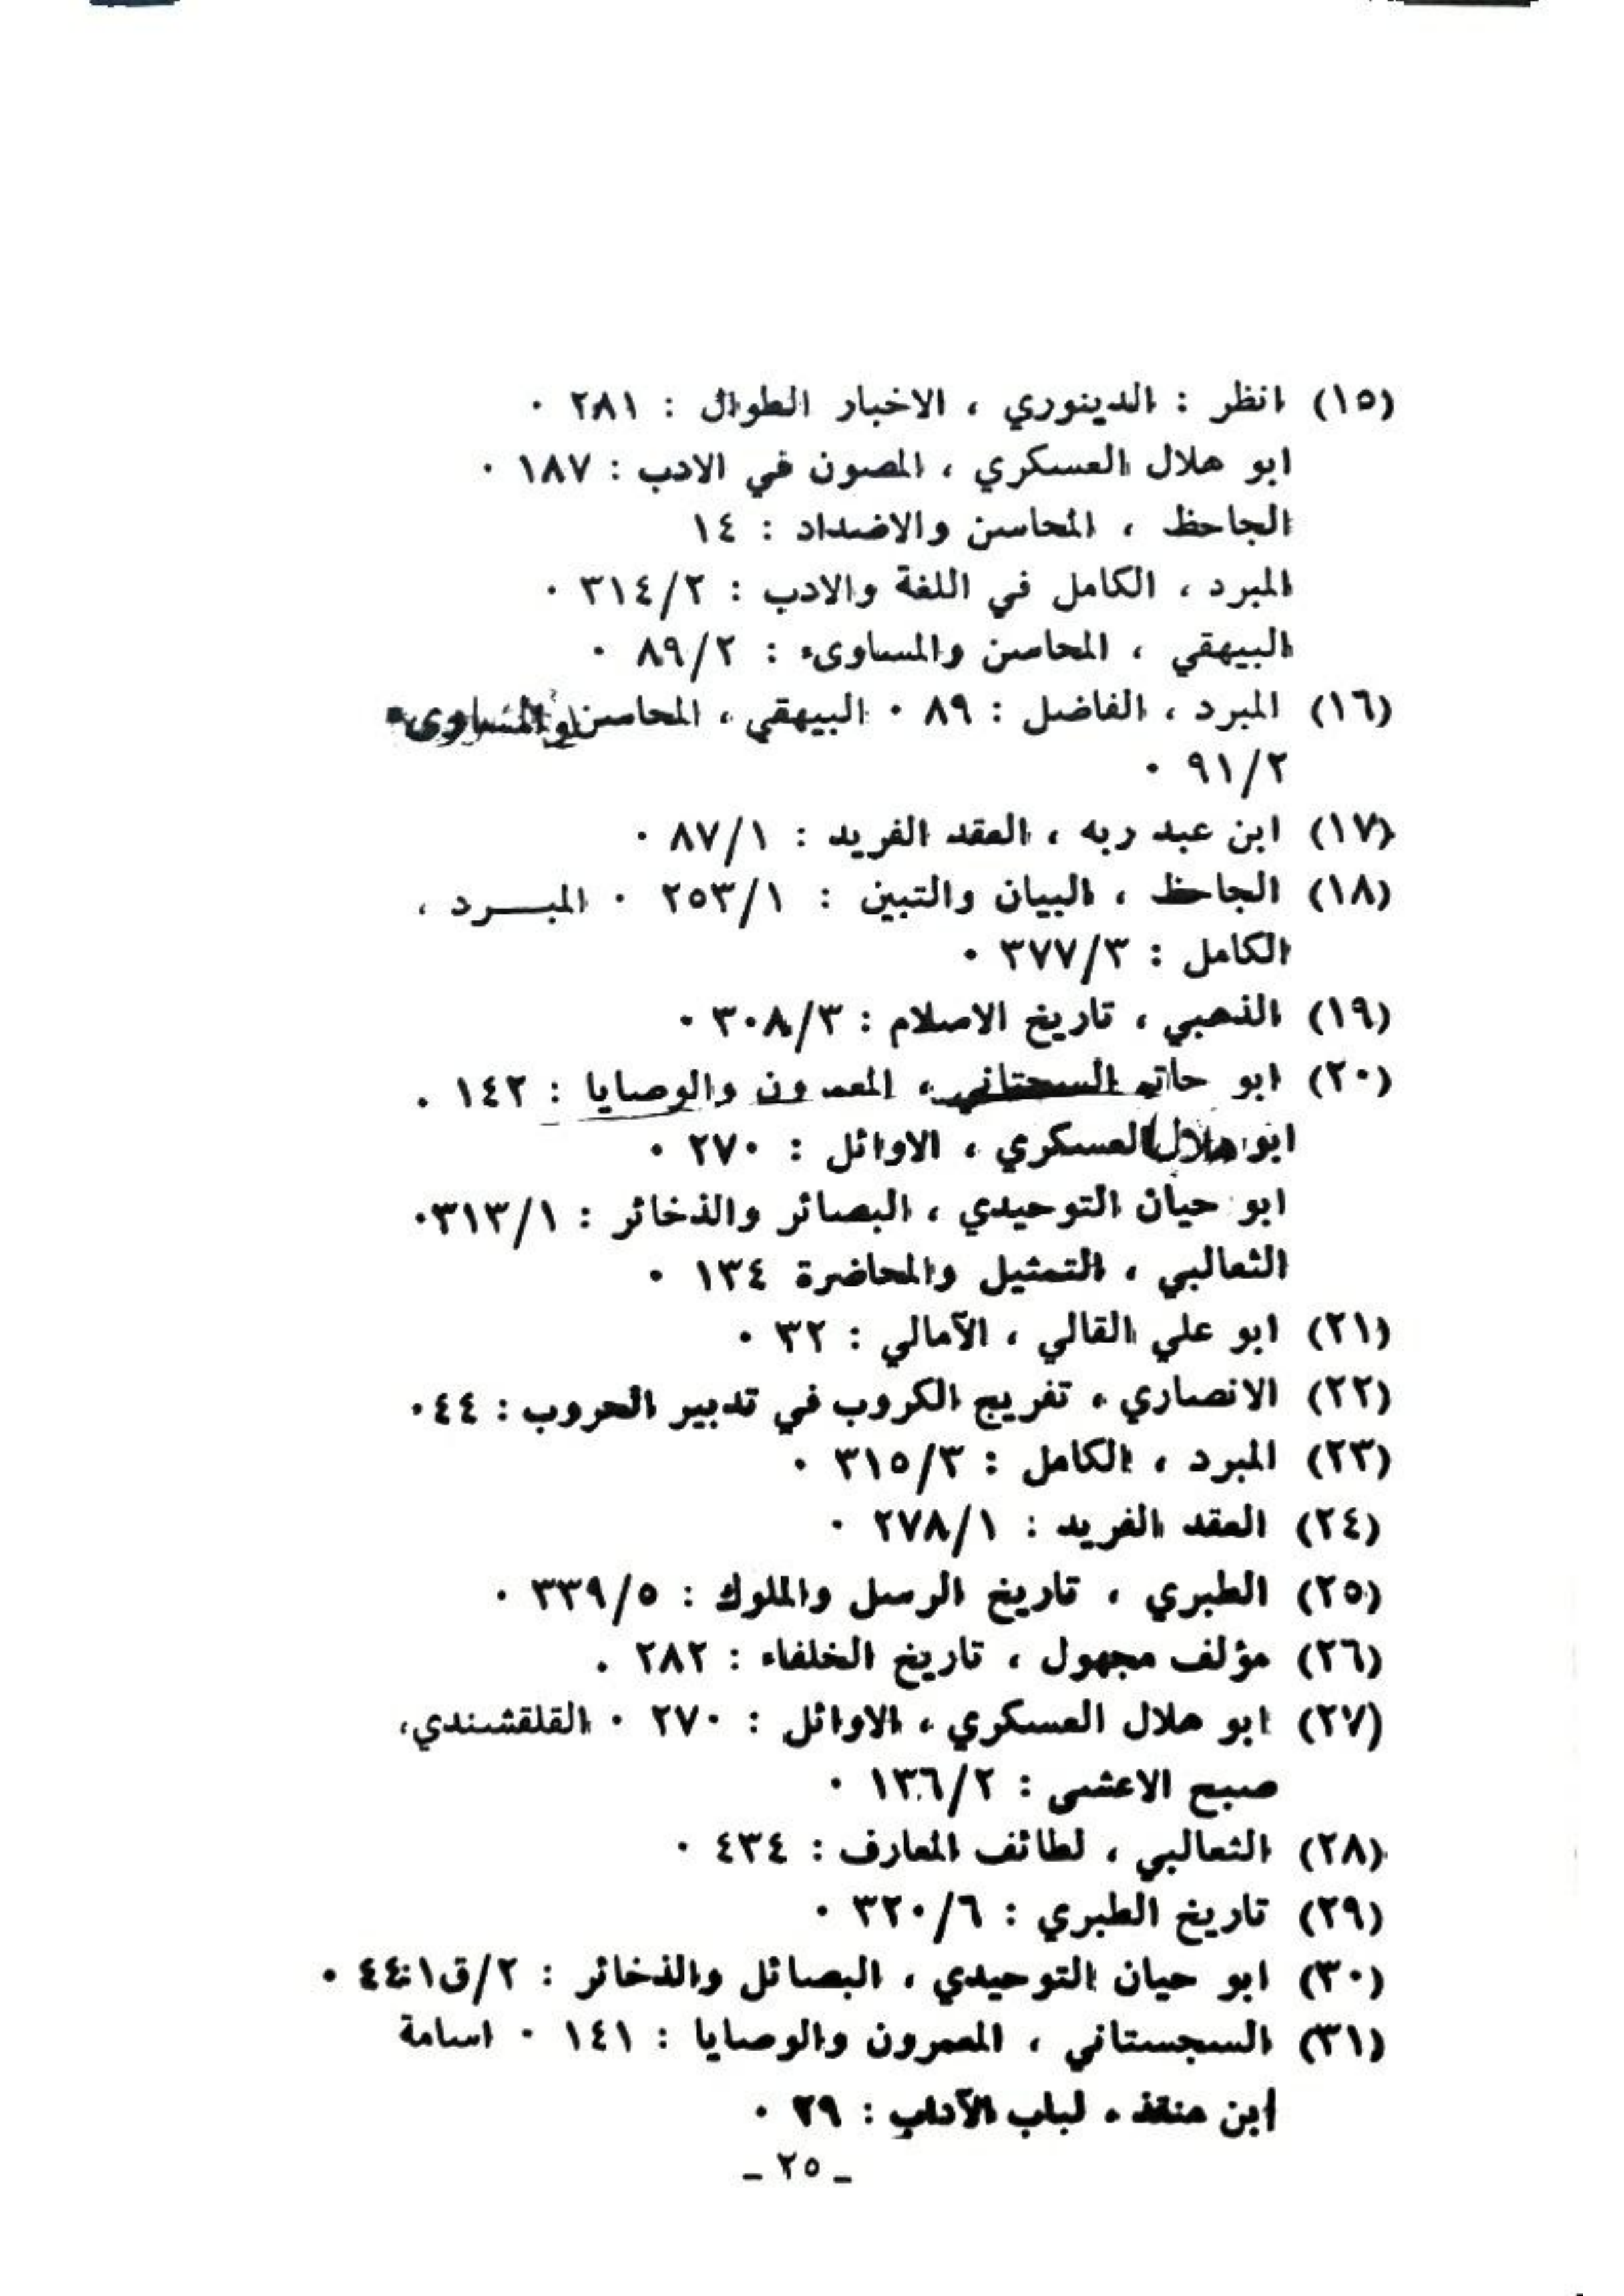 (١٥) انظر : الدينوري ، الاخبار الطوال : ٢٨١ ٠
ابو هلال العسكري ، المصون في الادب : ١٨٧ ٠
الجاحظ ، المحاسن والاضداد : ١٤
المبرد ، الكامل في اللغة والادب : ٣١٤/٢ ٠
البيهقي ، المحاسن والمساوىء : ٨٩/٢ ٠
(١٦) المبرد ، الفاضل : ٨٩ ٠ البيهقي ، المحاسن والمساوىء
٩١/٢ ٠
(١٧) ابن عبد ربه ، العقد الفريد : ٨٧/١ ٠
(١٨) الجاحظ ، البيان والتبين : ٢٥٣/١ ٠ المبـــرد ،
الكامل : ٣٧٧/٣ ٠
(١٩) الذهبي ، تاريخ الاسلام : ٣٠٨/٣ ٠
(٢٠) ابو حاتم السجتاني ، المعمرون والوصايا : ١٤٢ .
ابو هلال العسكري ، الاوائل : ٢٧٠ ٠
ابو حيان التوحيدي ، البصائر والذخائر : ٣١٣/١٠
الثعالبي ، التمثيل والمحاضرة ١٣٤ ٠
(٢١) ابو علي القالي ، الآمالي : ٣٢ ٠
(٢٢) الانصاري ، تفريج الكروب في تدبير الحروب : ٤٤٠
(٢٣) المبرد ، الكامل : ٣١٥/٣ ٠
(٢٤) العقد الفريد : ٢٧٨/١ ٠
(٢٥) الطبري ، تاريخ الرسل والملوك : ٣٣٩/٥ ٠
(٢٦) مؤلف مجهول ، تاريخ الخلفاء : ٢٨٢ .
(٢٧) ابو هلال العسكري ، الاوائل : ٢٧٠ ٠ القلقشندي،
صبح الاعشى : ١٣٦/٢ ٠
(٢٨) الثعالبي ، لطائف المعارف : ٤٣٤ ٠
(٢٩) تاريخ الطبري : ٣٢٠/٦ ٠
(٣٠) ابو حيان التوحيدي ، البصائل والذخائر : ٢/ق١:٤٤ ٠
(٣١) السجستاني ، المعمرون والوصايا : ١٤١ ٠ اسامة
ابن منقذ ، لباب الآداب : ٢٩ ٠
ـ ٢٥ ـ